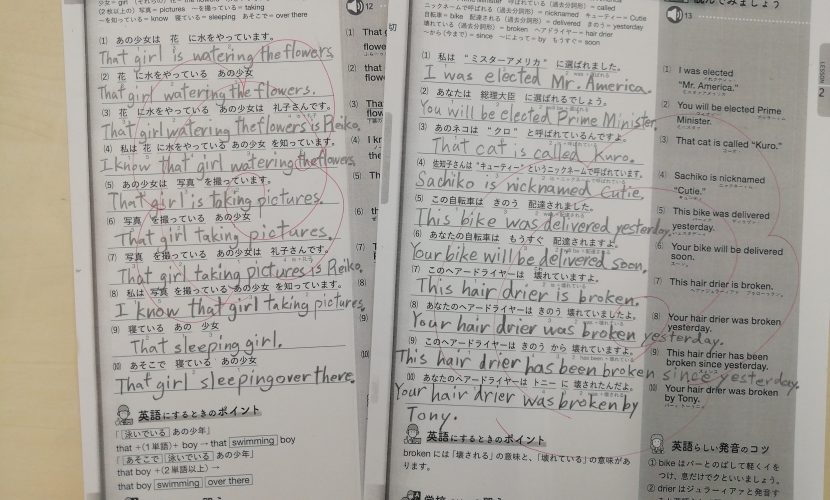 (2枚以上の) 写真 = pictures ～を撮っている = taking
～を知っている = know 寝ている = sleeping あそこで = over there
(1) あの少女は 花 に水をやっています。
That girl is watering the flowers.
(2) 花 に水をやっている あの少女
That girl watering the flowers.
(3) 花 に水をやっている あの少女は 礼子さんです。
That girl watering the flowers is Reiko.
(4) 私は 花 に水をやっている あの少女 を知っています。
I know that girl watering the flowers.
(5) あの少女は 写真 を撮っています。
That girl is taking pictures.
(6) 写真 を撮っている あの少女
That girl taking pictures.
(7) 写真 を撮っている あの少女は 礼子さんです。
That girl taking pictures is Reiko.
(8) 私は 写真 を撮っている あの少女 を知っています。
I know that girl taking pictures.
(9) 寝ている あの 少女
That sleeping girl.
(10) あそこで 寝ている あの少女
That girl sleeping over there.
英語にするときのポイント
「泳いでいる あの少年」
that +(1単語)+ boy → that swimming boy
「あそこで 泳いでいる あの少年」
that boy +(2単語以上) →
that boy swimming over there
12
(1) That
flowe
(2) that
flowe
(3) Tha
(4) I kn
the
(5) Th
(6) th
(7) T
(8)
(9)
(10)
切
ニックネームで呼ばれる (過去分詞形) = nicknamed キューティー = Cutie
自転車 = bike 配達される (過去分詞形) = delivered きのう = yesterday
壊れている (過去分詞形) = broken ヘアードライヤー = hair drier
～から (今まで) = since ～によって = by もうすぐ = soon
(1) 私は "ミスターアメリカ" に選ばれました。
I was elected Mr. America.
(2) あなたは 総理大臣 に選ばれるでしょう。
You will be elected Prime Minister.
(3) あのネコは "クロ" と呼ばれているんですよ。
That cat is called Kuro.
(4) 佐知子さんは "キューティー" というニックネームで呼ばれています。
Sachiko is nicknamed Cutie.
(5) この自転車は きのう 配達されました。
This bike was delivered yesterday.
(6) あなたの自転車は もうすぐ 配達されますよ。
Your bike will be delivered soon.
(7) このヘアードライヤーは 壊れていますよ。
This hair drier is broken.
(8) あなたのヘアードライヤーは きのう 壊れていましたよ。
Your hair drier was broken yesterday.
(9) このヘアードライヤーは きのう から 壊れていますよ。
This hair drier has been broken since yesterday.
(10) あなたのヘアードライヤーは トニー に 壊されたんだよ。
Your hair drier was broken by
Tony.
英語にするときのポイント
broken には「壊される」の意味と、「壊れている」の意味があ
ります。
13
LESSON
2
(1) I was elected
"Mr. America."
(2) You will be elected Prime
Minister.
(3) That cat is called "Kuro."
(4) Sachiko is nicknamed
"Cutie."
(5) This bike was delivered
yesterday.
(6) Your bike will be delivered
soon.
(7) This hair drier is broken.
(8) Your hair drier was broken
yesterday.
(9) This hair drier has been
broken since yesterday.
(10) Your hair drier was broken
by Tony.
英語らしい発音のコツ
① bike はバーとのばして軽くイを
つけ、息だけでクといいましょう。
② drier はジュラーィアァと発音す